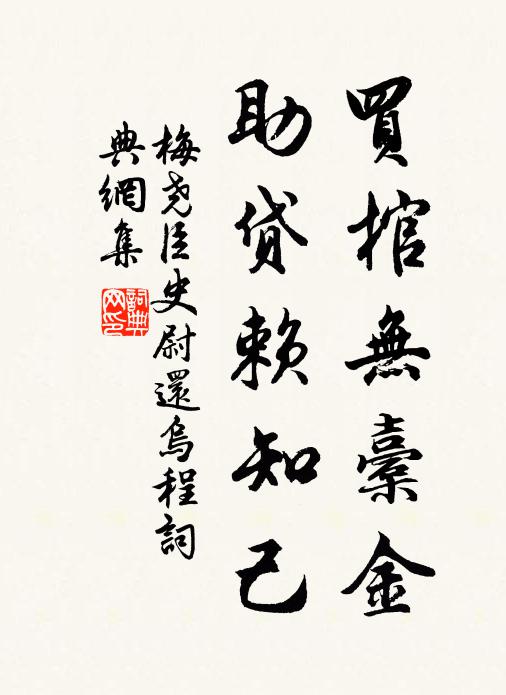 買棺無橐金
助貸賴知己
梅堯臣史尉還烏程詞
典網集
詞典
网印